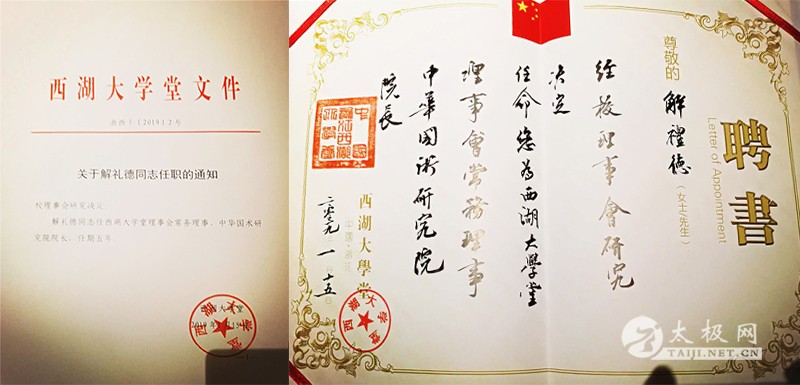 西湖大学堂文件
关于解礼德同志任职的通知
校理事会研究决定
解礼德同志任西湖大学堂理事会常务理事、中华国术研
究院院长，任期五年
西湖大学堂
聘書
Letter of Appointment
尊敬的
解禮德
(女士/先生)
经校理事會研究
决定
任命您为西湖大學堂
理事會常務理事
中華国術研究院
院長
西湖大學堂
一 十五
西湖大学堂
太极网
TAIJI.NET.CN